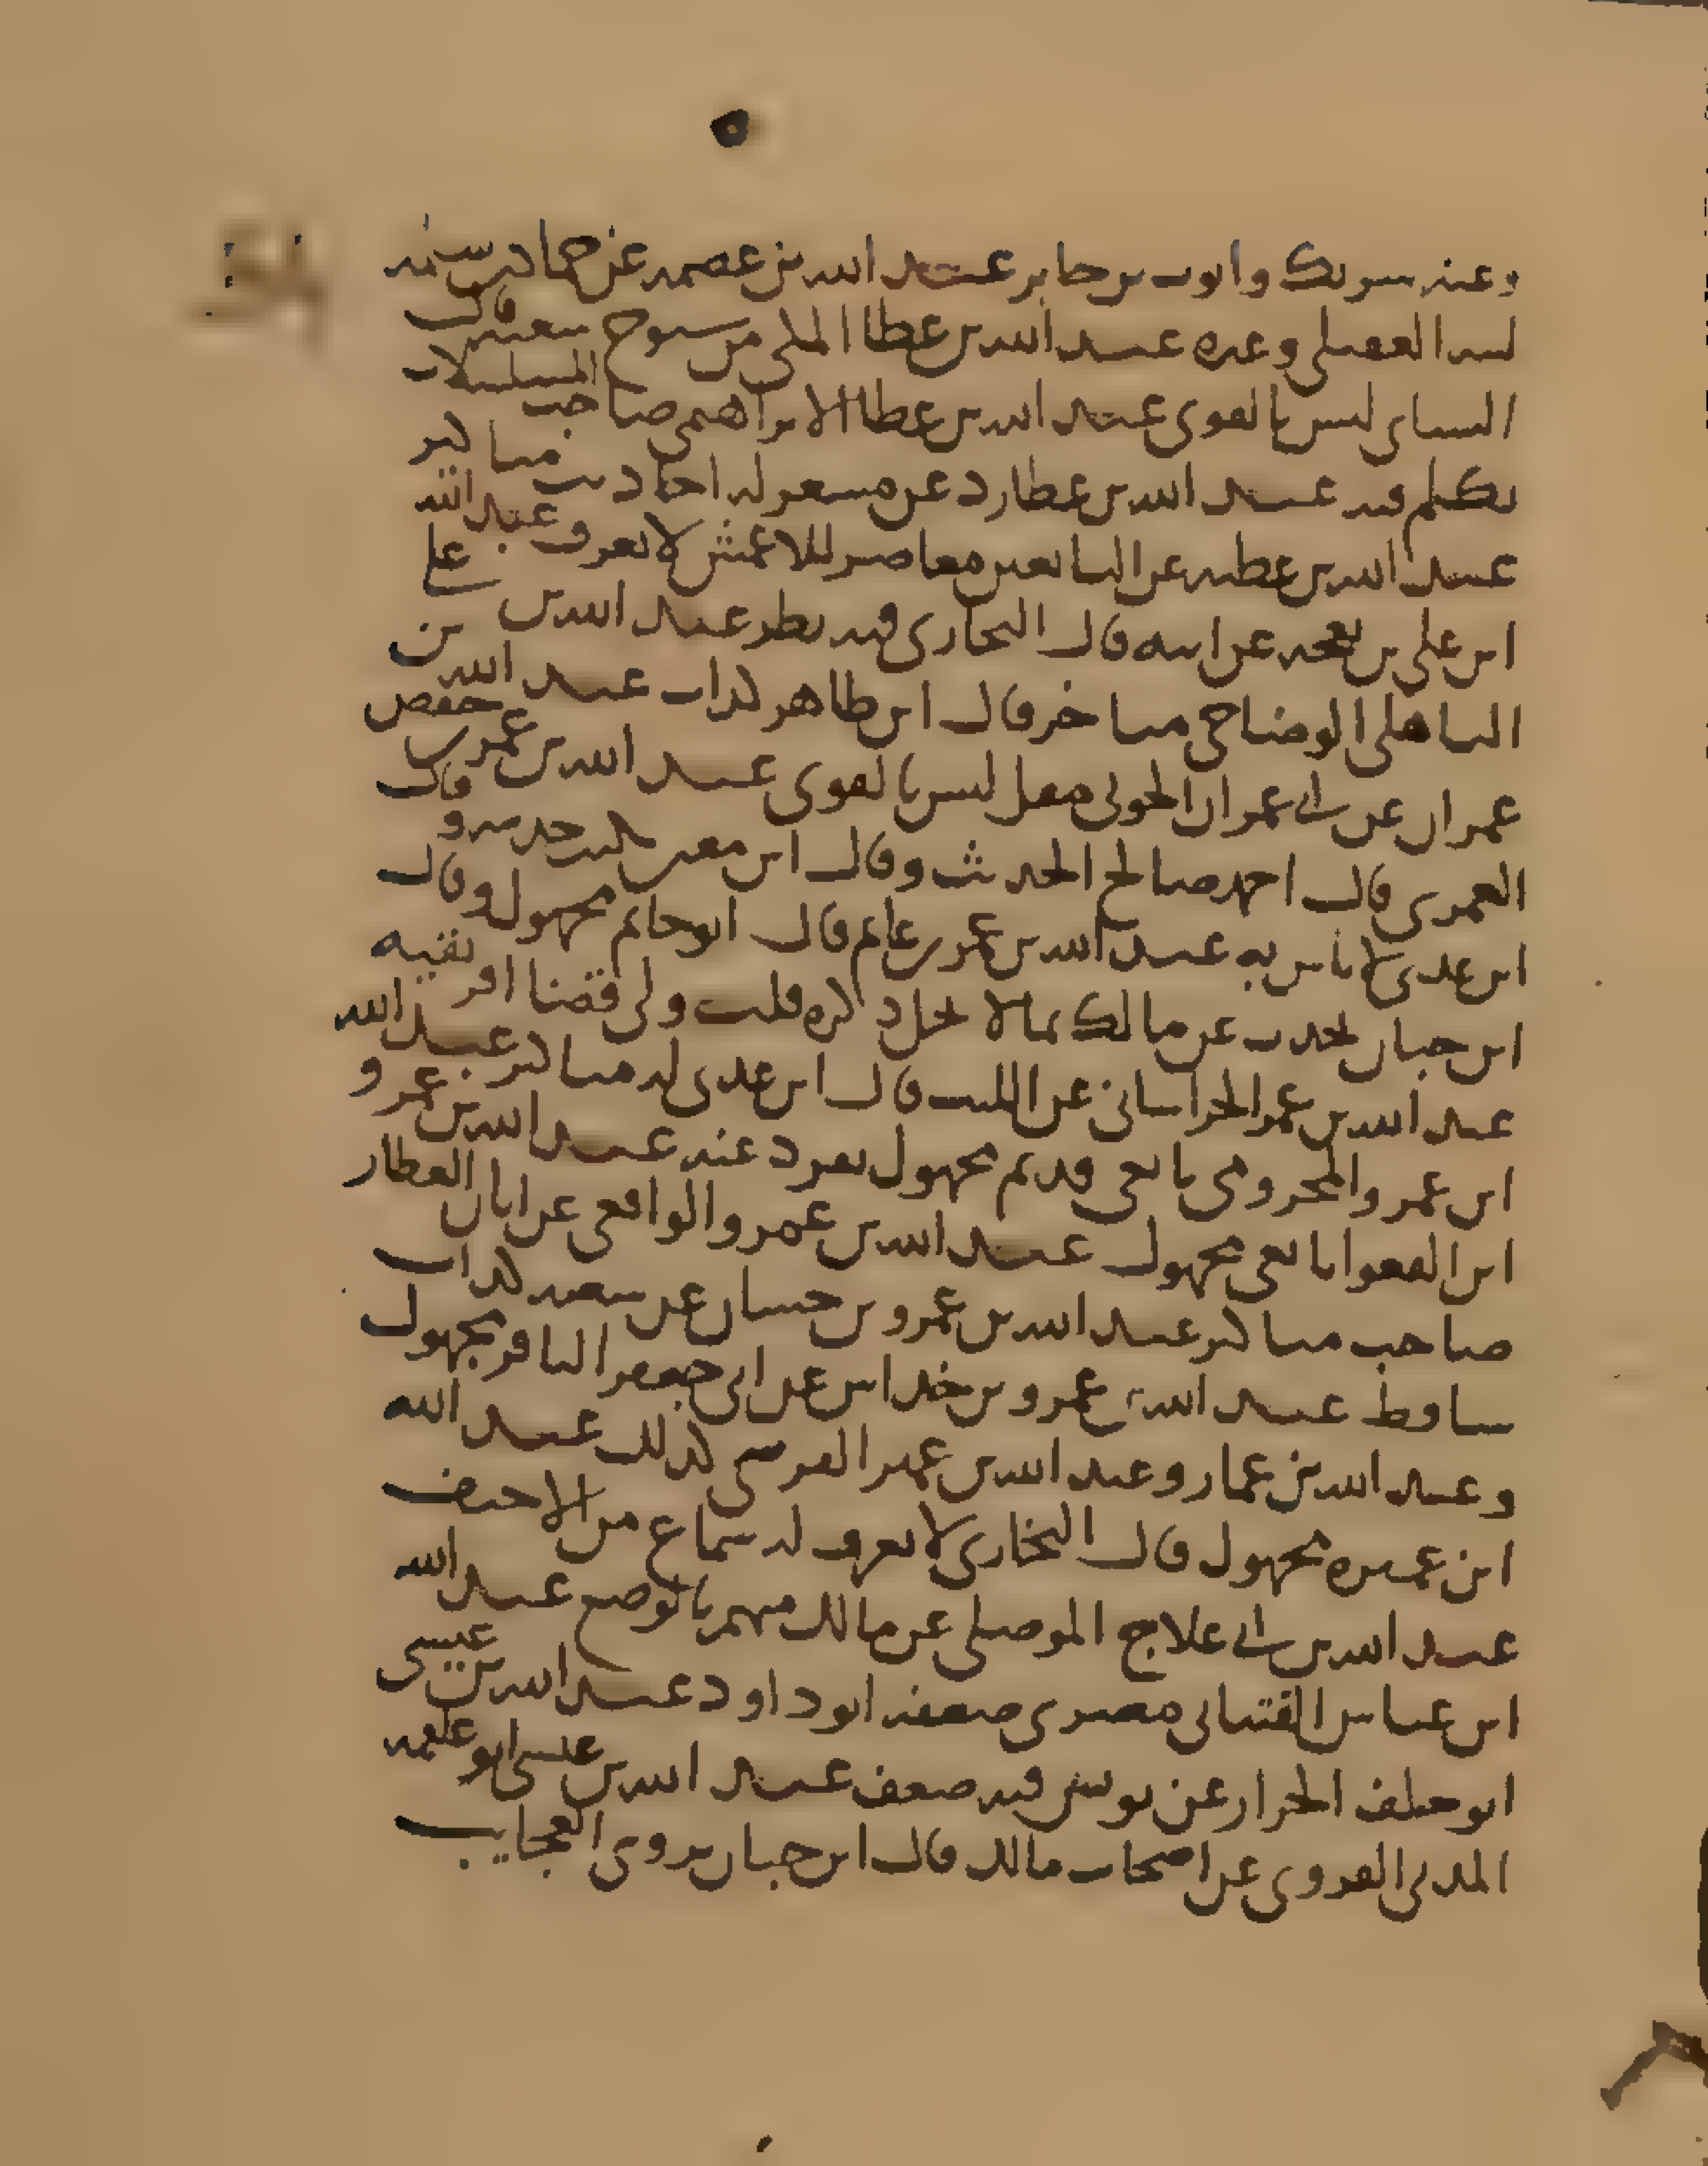 وعنه شريك وايوب بن جابر عبد الله بن عصمة عن حماد بن سلمة
لينه العقيلي وغيره عبد الله بن عطا المكي من شيوخ شعبة قال
النسائي ليس بالقوي عبد الله بن عطا الابراهيمي صاحب المسلسلات
تكلم فيه عبد الله بن عطارد عن مسعر له احاديث مناكير
عبد الله بن عطية عن التابعين معاصر للاعمش لا يعرف وعبد الله
ابن علي بن بعجة عن ابيه قال البخاري فيه نظر عبد الله بن علي
الباهلي الوضاحي متاخر قال ابن طاهر كذاب عبد الله بن
عمران عن ابي عمران الجوني مقل ليس بالقوي عبد الله بن عمر بن حفص
العمري قال احمد صالح الحديث وقال ابن معين يكتب حديثه وقال
ابن عدي لا باس به عبد الله بن عمر بن غانم قال ابو حاتم مجهول وقال
ابن حبان يحدث عن مالك بما لا يحل ذكره قلت ولي قضا افريقية
عبد الله بن عمر الخراساني عن الليث قال ابن عدي له مناكير عبد الله
ابن عمرو المخزومي تابعي قديم مجهول تفرد عنه عبد الله بن عمرو
ابن الفغوا تابعي مجهول عبد الله بن عمرو الواقعي عن ابان العطار
صاحب مناكير عبد الله بن عمرو بن حسان عن سعيد كذاب
ساقط عبد الله بن عمرو بن خداس عن ابي جعفر الباقر مجهول
وعبد الله بن عمار وعبد الله بن عمير القرسي كذلك عبد الله
ابن عميرة مجهول قال البخاري لا يعرف له سماع من الاحنف
عبد الله بن ابي علاج الموصلي عن مالك متهم بالوضع عبد الله
ابن عياس القتباني مصري ضعفه ابو داود عبد الله بن عيسى
ابو خلف الخزاز عن يونس فيه ضعف عبد الله بن عيسى ابو علقمة
المدني الفروي عن اصحاب مالك قال ابن حبان يروي العجايب